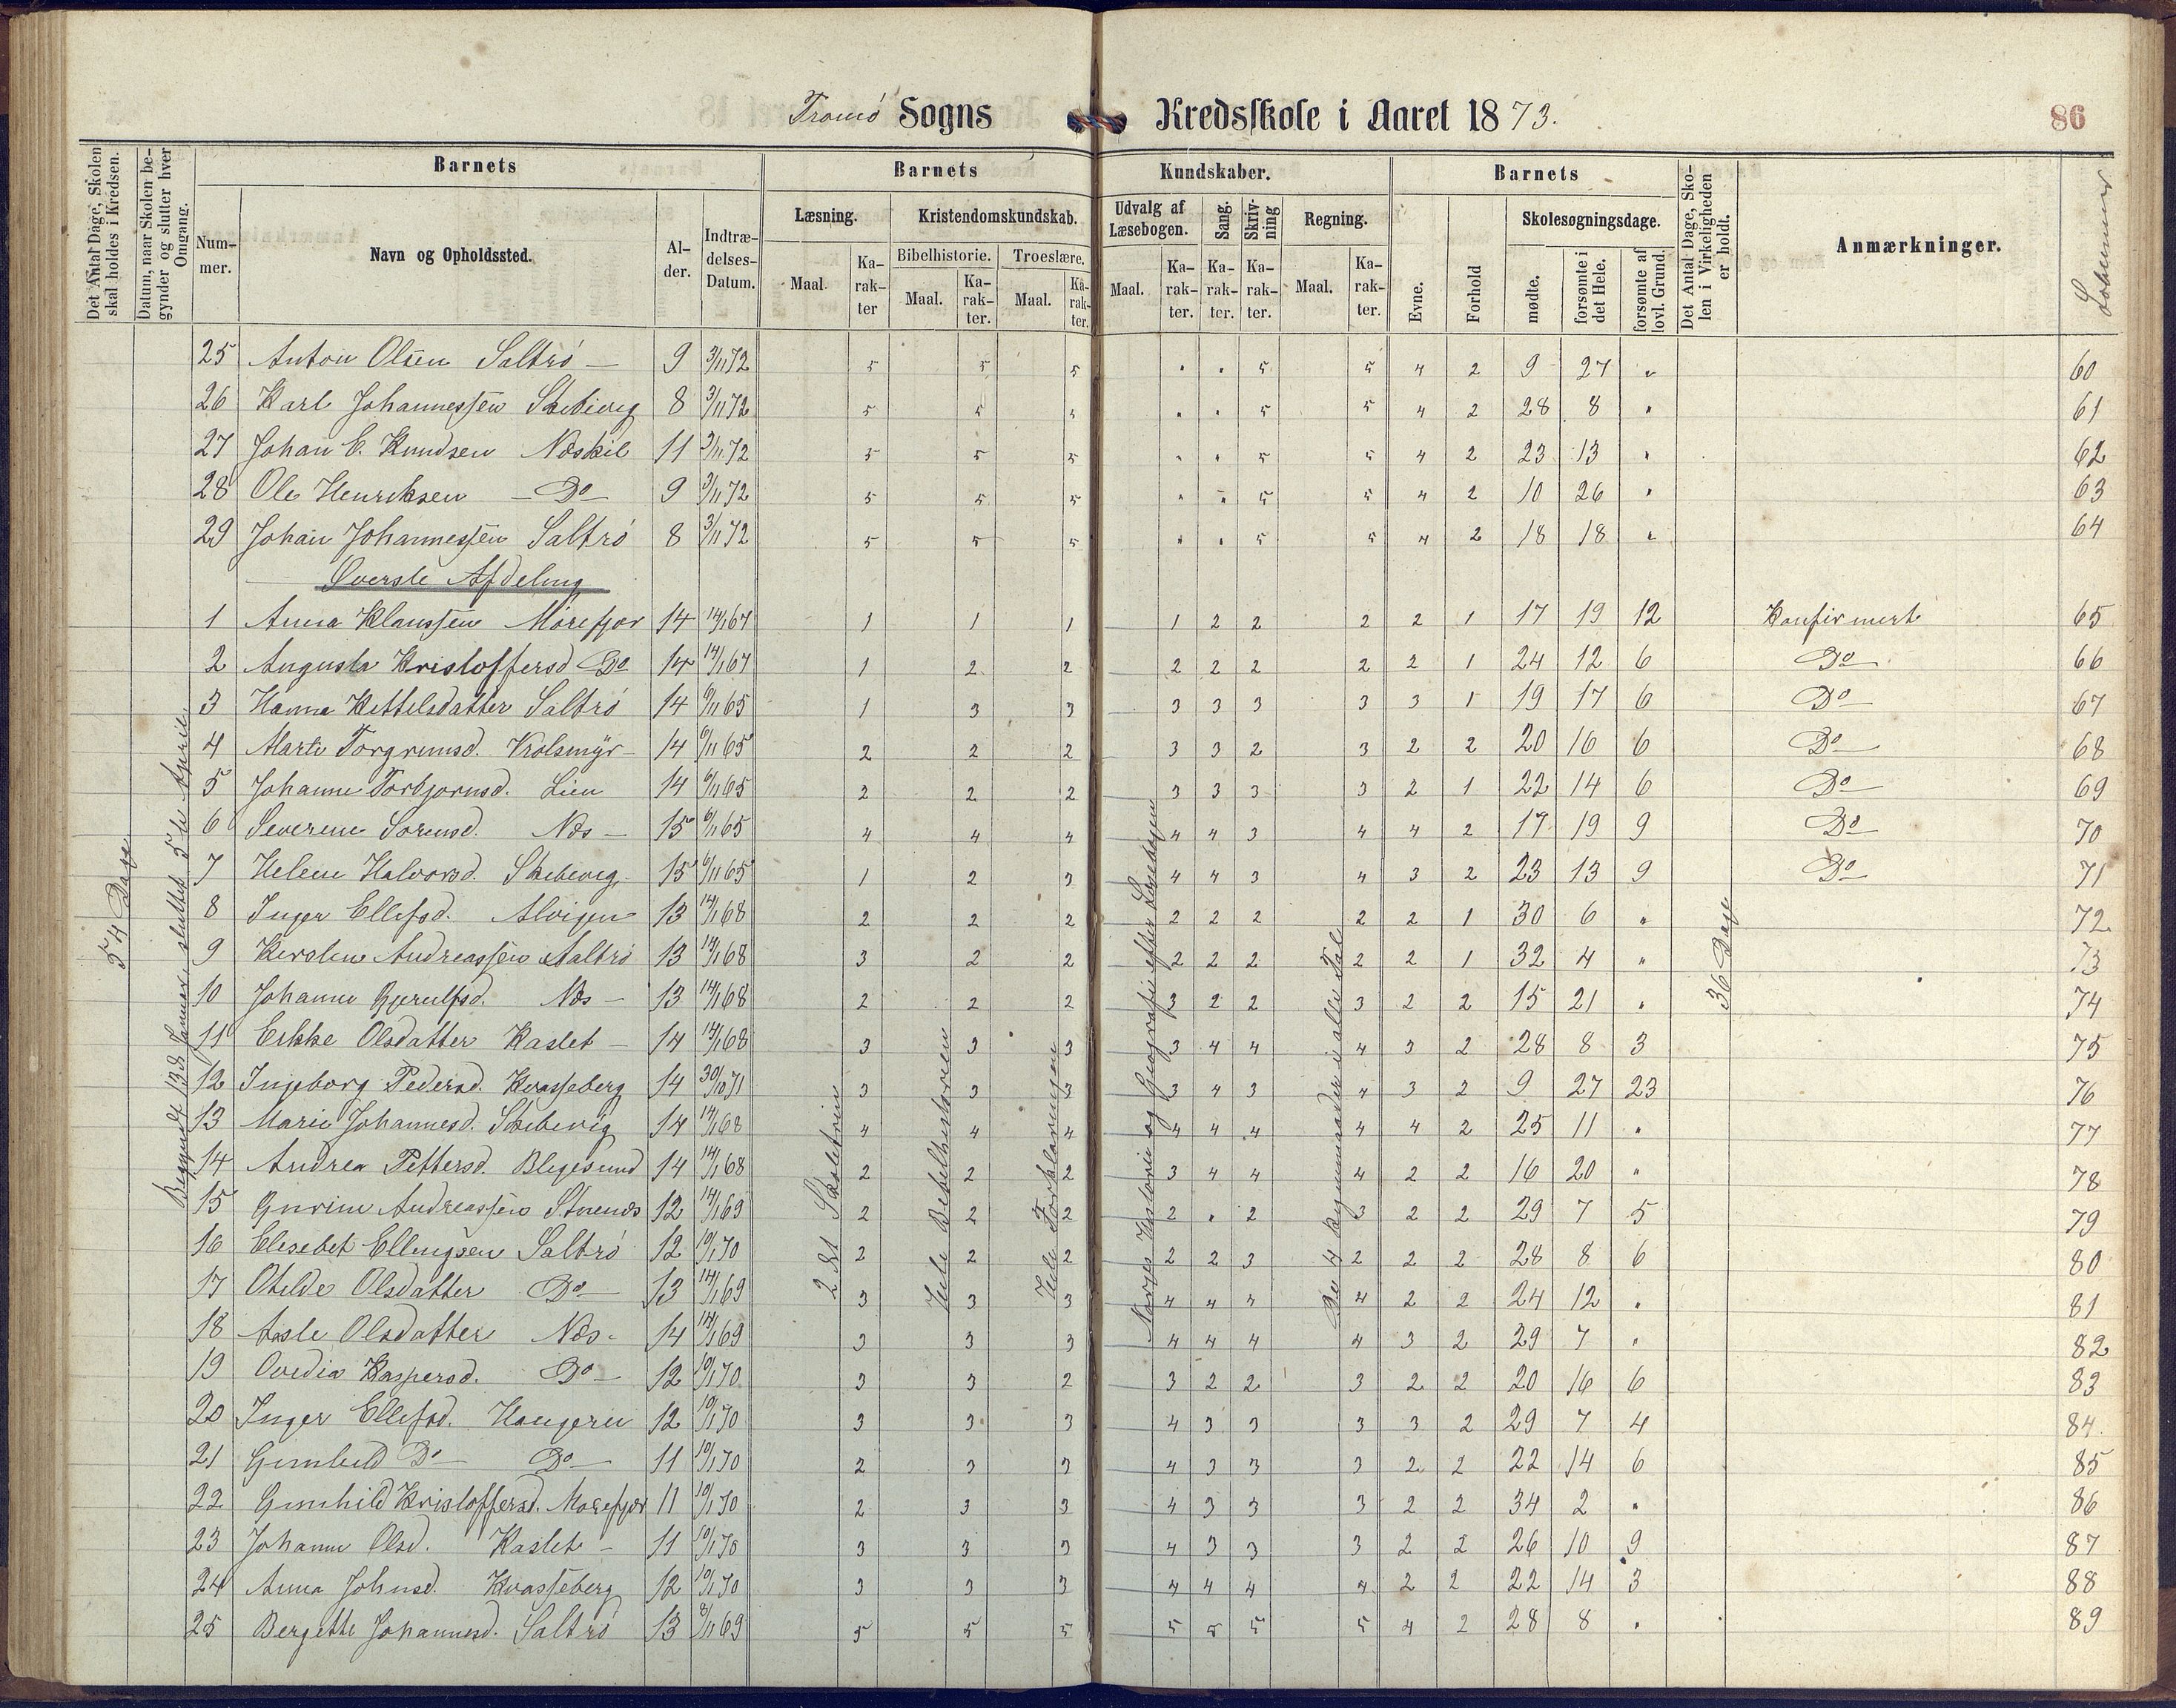 Tromø Sogns Kredsskole i Aaret 1873.
86
Det Antal Dage, Skolen skal holdes i Kredsen.
Datum, naar Skolen begynder og slutter hver Omgang.
Barnets
Nummer.
Navn og Opholdssted.
Alder.
Indtrædelses-Datum.
Barnets Kundskaber.
Læsning.
Maal.
Karakter
Kristendomskundskab.
Bibelhistorie.
Maal.
Karakter.
Troeslære.
Maal.
Karakter.
Udvalg af Læsebogen.
Maal.
Karakter.
Sang.
Karakter.
Skrivning
Karakter.
Regning.
Maal.
Karakter.
Barnets
Evne.
Forhold
Skolesøgningsdage.
mødte.
forsømte i det Hele.
forsømte af lovl. Grund.
Det Antal Dage, Skolen i Virkeligheden er holdt.
Anmærkninger.
Løbenumer
25 Anton Olsen Saltrö — 9 3/11 72 5 5 5 " " 5 5 4 2 9 27 " 60
26 Karl Johannessen Skibevig 8 3/11 72 5 5 5 " " 5 5 4 2 28 8 " 61
27 Johan C. Knudsen Neskil 11 3/11 72 5 5 5 " " 5 5 4 2 23 13 " 62
28 Ole Henriksen — Do — 9 3/11 72 5 5 5 " " 5 5 4 2 10 26 " 63
29 Johan Johannessen Saltrö 8 3/11 72 5 5 5 " " 5 5 4 2 18 18 " 64
Øverste Afdeling
1 Anna Klaussen Mörefjær 14 14/1 67 1 1 1 1 2 2 2 2 1 17 19 12 Konfirmert 65
2 Augusta Kristoffersd Do 14 14/1 67 1 2 2 2 2 2 2 2 1 24 12 6 Do 66
3 Hanna Kettelsdatter Saltrö 14 6/11 65 1 3 3 3 3 3 3 3 1 19 17 6 Do 67
4 Marte Torgrimsd. 14 6/11 65 2 2 2 3 3 2 3 2 2 20 16 6 Do 68
5 Johanne Torbjornsd. Lien 14 6/11 65 2 2 2 3 3 3 3 2 1 22 14 6 Do 69
6 Severine Sorensd. Næs — 15 6/11 65 4 4 4 4 4 3 4 4 2 17 19 9 Do 70
7 Helene Halvorsd. Skibevig 15 6/11 65 1 2 3 4 4 3 4 3 2 23 13 9 Do 71
8 Inger Ellefsd. Alvigen 13 14/1 68 2 2 2 2 2 2 2 2 1 30 6 " 72
9 Kirsten Andreassen Saltrö 13 14/1 68 3 2 2 2 2 2 2 2 1 32 4 " 73
10 Johanne Gjerulfsd. Næs — 13 14/1 68 2 2 2 3 2 2 3 2 2 15 21 " 74
11 Erikke Olsdatter Kaslet — 14 14/1 68 3 3 3 3 4 4 4 3 2 28 8 3 75
12 Ingeborg Pedersd. Kvasseberg 14 30/10 71 3 3 3 3 4 3 4 3 2 9 27 23 76
13 Marie Johannesd. Skibevig 14 14/1 68 4 4 4 4 4 4 4 4 2 25 11 " 77
14 Andrea Pettersd. Blegesund 14 14/1 68 2 2 2 3 4 4 4 2 2 16 20 " 78
15 Gurine Andreassen Stuenes 12 14/1 69 2 2 2 2 " 2 3 2 2 29 7 5 79
16 Elesebet Ellingsen Saltrö 12 10/1 70 2 2 2 2 2 3 2 2 2 28 8 6 80
17 Otilde Olsdatter Do — 13 14/1 69 3 3 3 4 4 4 4 2 2 24 12 " 81
18 Aasle Olsdatter Næs — 14 14/1 69 3 3 3 4 4 4 4 3 2 29 7 " 82
19 Ovedia Kaspersd. Do — 12 10/1 70 3 3 2 3 2 2 3 2 2 20 16 6 83
20 Inger Ellefsd. Haugern 12 10/1 70 3 3 3 4 3 3 3 3 2 29 7 4 84
21 Gunhild Do — Do — 11 10/1 70 2 3 3 4 3 3 3 2 2 22 14 6 85
22 Gunhild Kristoffersd. Morefjær 11 10/1 70 2 3 3 4 3 3 3 2 2 34 2 " 86
23 Johanne Olsd. Kaslet — 11 10/1 70 3 3 3 4 3 3 3 2 2 26 10 9 87
24 Anna Johnsd. Kvasseberg 12 10/1 70 3 3 3 4 4 4 4 2 2 22 14 3 88
25 Bergette Johannesd. Saltrö 13 8/11 69 5 5 5 5 5 5 5 4 2 28 8 " 89
54 Dage
Begyndt 13de Januar sluttet 5te April.
2det Skoletrin
Hele Bibelhistorien
Hele Forklaringen
Norges Historie og Geografi efter Læsebogen
De 4 Regningsarter i alle Tal
36 Dage